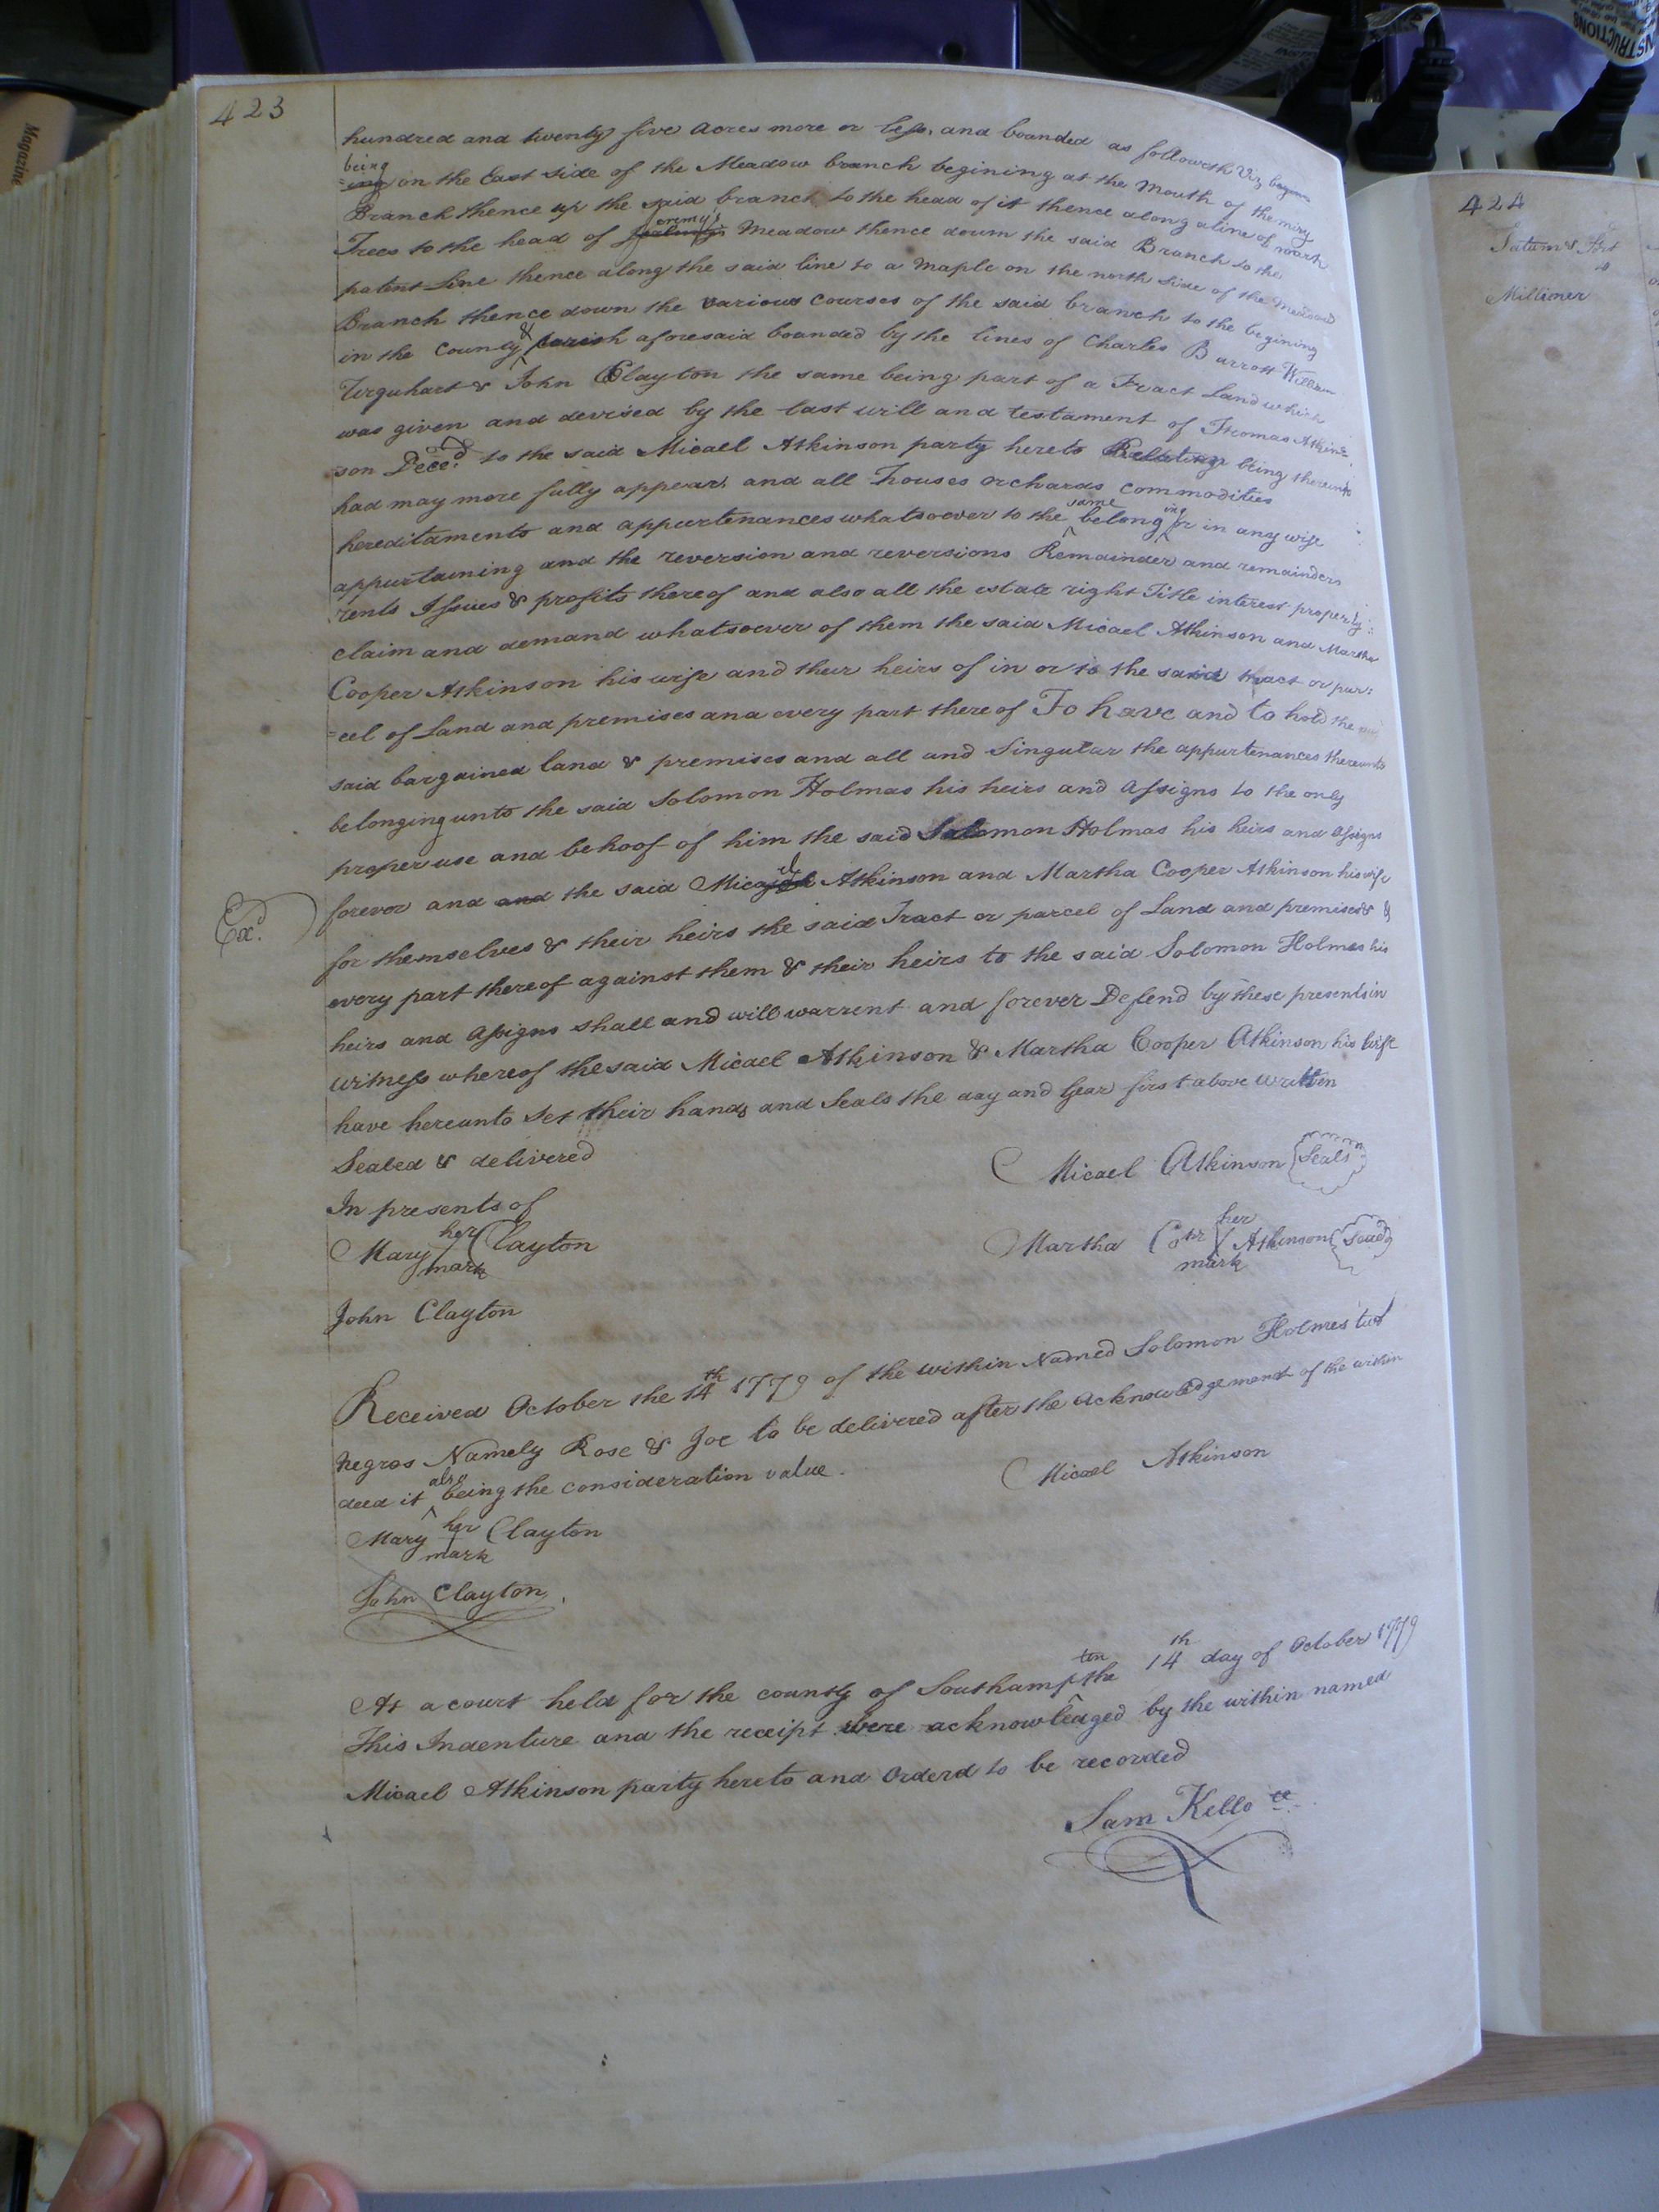 423
hundred and twenty five acres more or less, and bounded as followeth Viz
being
on the East side of the Meadow branch begining at the Mouth of the miry
Branch thence up the said branch to the head of it thence along a line of mark
Trees to the head of Joremy's Meadow thence down the said Branch to the
patent Line thence along the said line to a Maple on the north side of the Meadow
Branch thence down the various courses of the said branch to the begining
in the County & parish aforesaid bounded by the lines of Charles Barrott William
Urquhart & John Clayton the same being part of a Tract Land which
was given and devised by the last will and testament of Thomas Atkin=
son Deced. to the said Micael Atkinson party hereto Relation being thereunto
had may more fully appear, and all Houses orchards commodities
hereditaments and appurtenances whatsoever to the same belonging or in any wise
appurtaining and the reversion and reversions Remainder and remainders
rents Issues & profits thereof and also all the estate right Title interest property
claim and demand whatsoever of them the said Micael Atkinson and Martha
Cooper Atkinson his wife and their heirs of in or to the said tract or par:
=cel of Land and premises and every part thereof To have and to hold the
said bargained land & premises and all and Singular the appurtenances thereunto
belonging unto the said Solomon Holmas his heirs and Assigns to the only
proper use and behoof of him the said Solomon Holmas his heirs and Assigns
forever and and the said Micael Atkinson and Martha Cooper Atkinson his wife
Exd.
for themselves & their heirs the said Tract or parcel of Land and premises & &
every part thereof against them & their heirs to the said Solomon Holmes his
heirs and Assigns shall and will warrent and forever Defend by these presents in
witness whereof the said Micael Atkinson & Martha Cooper Atkinson his Wife
have hereunto Set their hands and Seals the day and year first above written
Sealed & delivered
Micael Atkinson (Seals)
In presents of
her
Mary Clayton
mark
her
Martha Cosr Atkinson (Seal)
mark
John Clayton
Received October the 14th 1779 of the within Named Solomon Holmes two
negros Namely Rose & Joe to be delivered after the Acknowledgement of the within
deed it also being the consideration value.
Micael Atkinson
her
Mary Clayton
mark
John Clayton.
At a court held for the county of Southampton the 14th day of October 1779
This Indenture and the receipt were acknowledged by the within named
Micael Atkinson party hereto and Orderd to be recorded
Sam Kello cc
424
Tatum &
to
Millioner
Magazine
INSTRUCTIONS